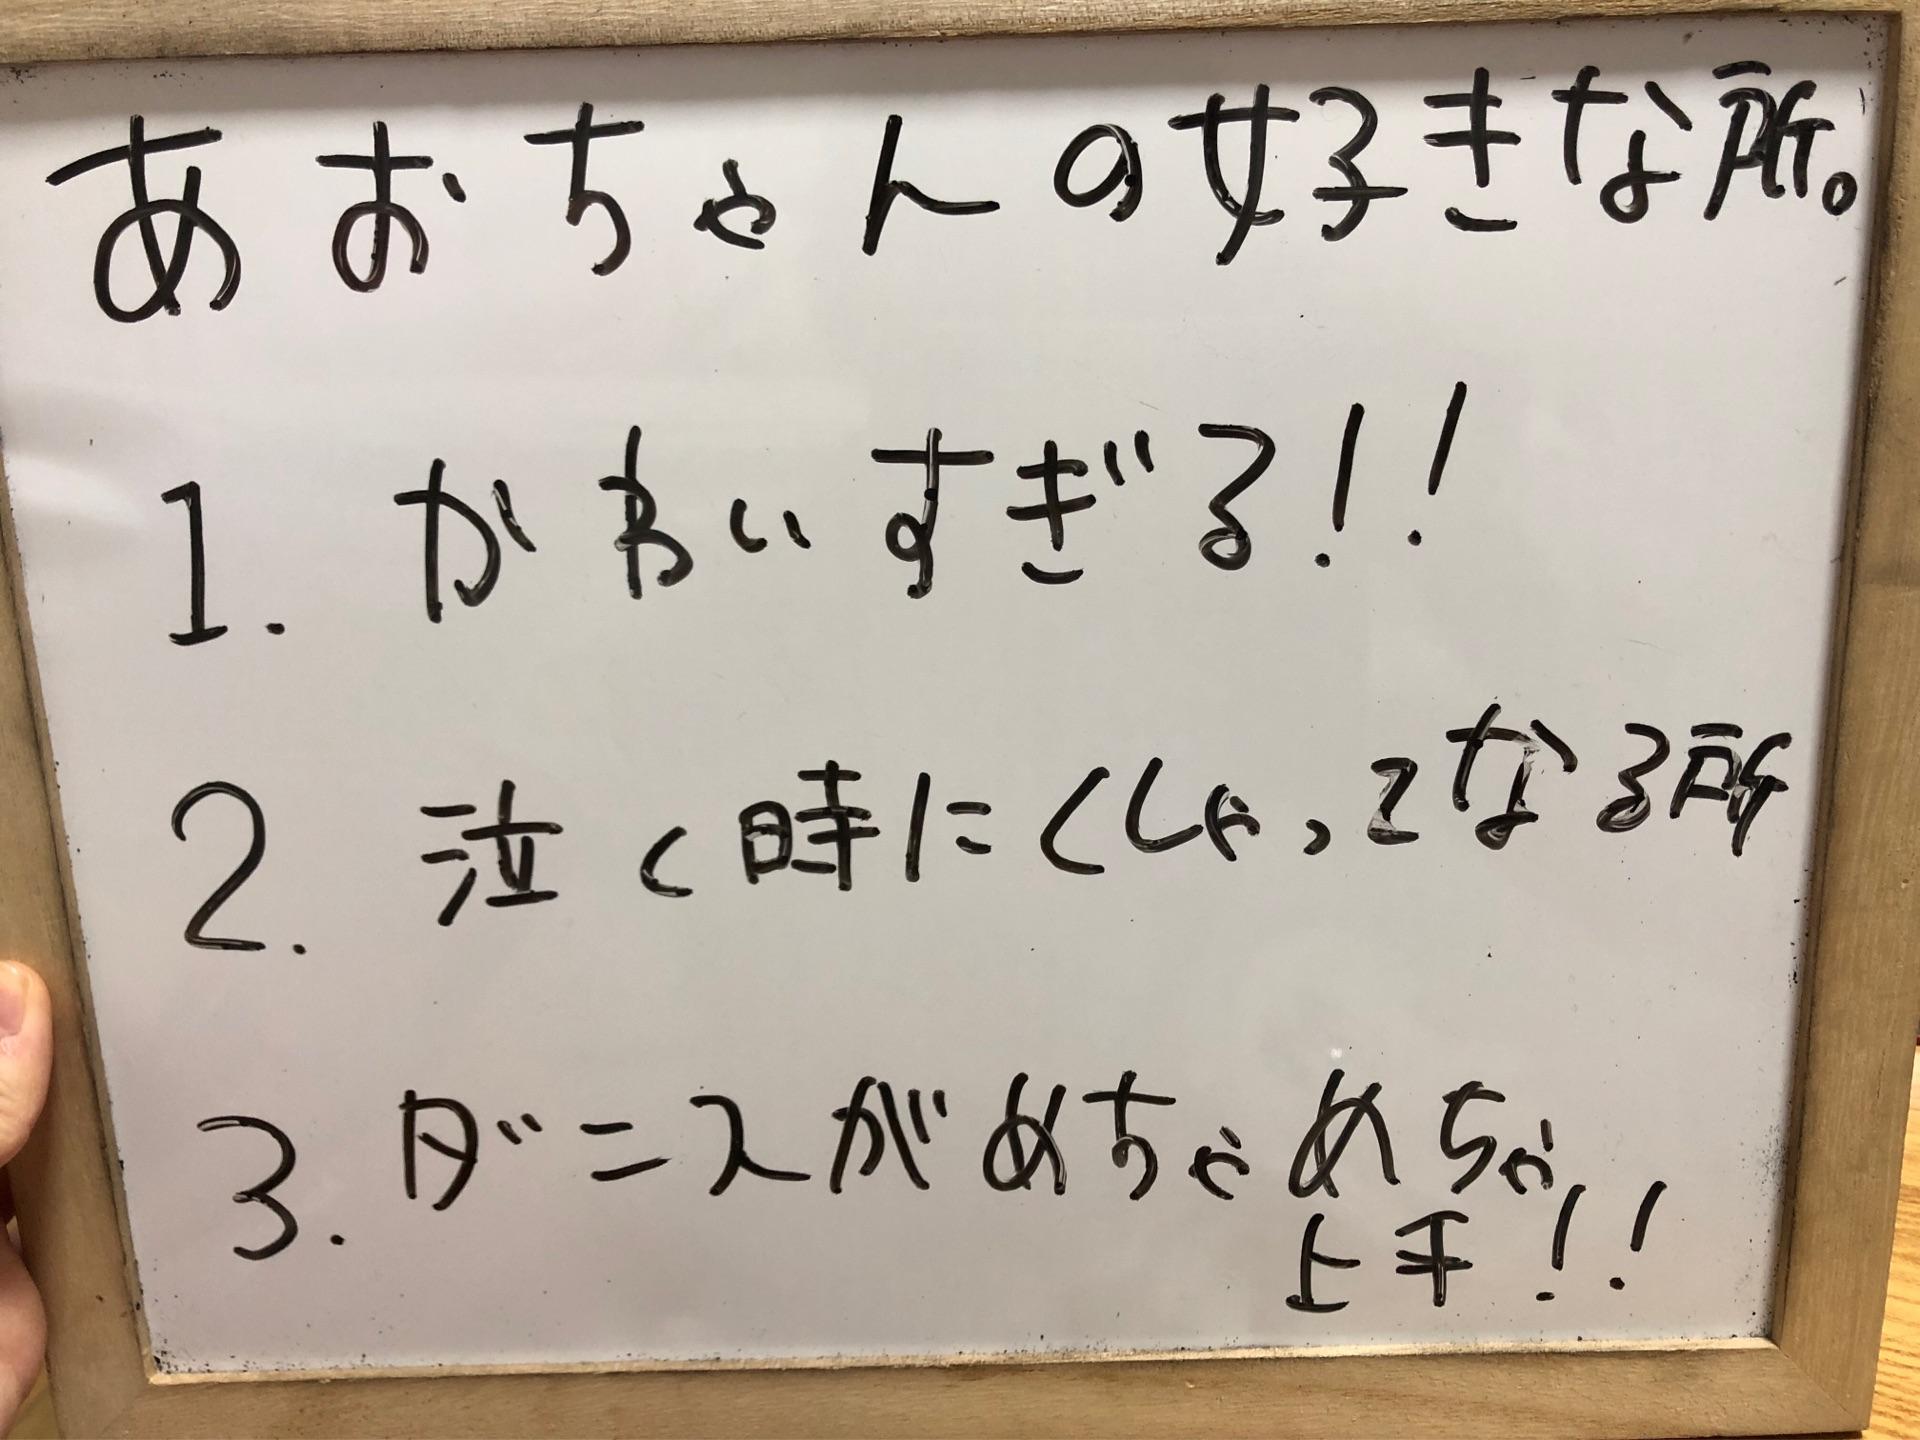 あおちゃんの好きな所。
1. かわいすぎる!!
2. 泣く時にくしゃってなる所
3. ダンスがめちゃめちゃ
上手!!